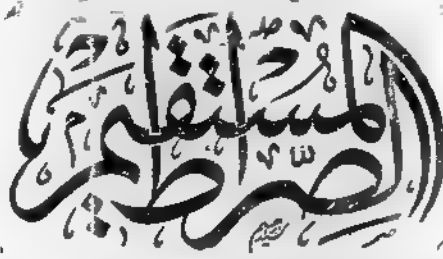 الصرط
المستقيم